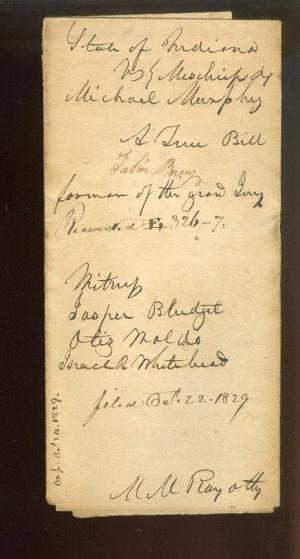 State of Indiana
vs } Mischief &
Michael Murphy
A True Bill
forman of the grand Jury
Recorded 326-7.
Witness
Jasper Bludget
Otiz Waldo
Israel R Whitehead
filed Oct. 22. 1829
M M Ray atty
Oct 24. 1829.